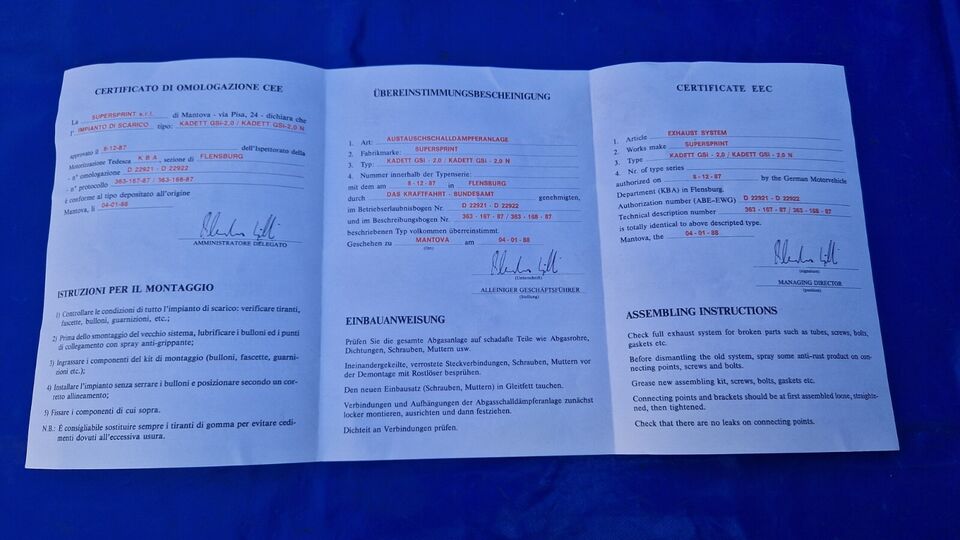 CERTIFICATO DI OMOLOGAZIONE CEE
La SUPERSPRINT s.r.l. di Mantova - via Pisa, 24 - dichiara che
l' IMPIANTO DI SCARICO tipo: KADETT GSi-2,0 / KADETT GSi-2,0 N
approvato il 8-12-87 dell'Ispettorato della
Motorizzazione Tedesca K B A, sezione di FLENSBURG
- n° omologazione D 22921 - D 22922
- n° protocollo 363-167-87 / 363-168-87
è conforme al tipo depositato all'origine
Mantova, li 04-01-88
AMMINISTRATORE DELEGATO
ISTRUZIONI PER IL MONTAGGIO
1) Controllare le condizioni di tutto l'impianto di scarico: verificare tiranti,
fascette, bulloni, guarnizioni, etc.;
2) Prima dello smontaggio del vecchio sistema, lubrificare i bulloni ed i punti
di collegamento con spray anti-grippante;
3) Ingrassare i componenti del kit di montaggio (bulloni, fascette, guarni-
zioni etc.);
4) Installare l'impianto senza serrare i bulloni e posizionare secondo un cor-
retto allineamento;
5) Fissare i componenti di cui sopra.
N.B.: È consigliabile sostituire sempre i tiranti di gomma per evitare cedi-
menti dovuti all'eccessiva usura.
ÜBEREINSTIMMUNGSBESCHEINIGUNG
1. Art: AUSTAUSCHSCHALLDÄMPFERANLAGE
2. Fabrikmarke: SUPERSPRINT
3. Typ: KADETT GSi - 2,0 / KADETT GSi - 2,0 N
4. Nummer innerhalb der Typenserie:
mit dem am 8-12-87 in FLENSBURG
durch DAS KRAFTFAHRT - BUNDESAMT genehmigten,
im Betriebserlaubnisbogen Nr. D 22921 - D 22922
und im Beschreibungsbogen Nr. 363 - 167 - 87 / 363 - 168 - 87
beschriebenen Typ volkommen übereinstimmt.
Geschehen zu MANTOVA am 04 - 01 - 88
(Ort)
(Unterschrift)
ALLEINIGER GESCHÄFTSFÜHRER
(Stellung)
EINBAUANWEISUNG
Prüfen Sie die gesamte Abgasanlage auf schadafte Teile wie Abgasrohre,
Dichtungen, Schrauben, Muttern usw.
Ineinandergekeilte, verrostete Steckverbindungen, Schrauben, Muttern vor
der Demontage mit Rostlöser besprühen.
Den neuen Einbausatz (Schrauben, Muttern) in Gleitfett tauchen.
Verbindungen und Aufhängungen der Abgasschalldämpferanlage zunächst
locker montieren, ausrichten und dann festziehen.
Dichteit an Verbindungen prüfen.
CERTIFICATE EEC
1. Article EXHAUST SYSTEM
2. Works make SUPERSPRINT
3. Type KADETT GSi - 2,0 / KADETT GSi - 2,0 N
4. Nr. of type series
authorized on 8 - 12 - 87 by the German Motorvehicle
Department (KBA) in Flensburg.
Authorization number (ABE-EWG) D 22921 - D 22922
Technical description number 363 - 167 - 87 / 363 - 168 - 87
is totally identical to above descripted type.
Mantova, the 04 - 01 - 88
(signature)
MANAGING DIRECTOR
(position)
ASSEMBLING INSTRUCTIONS
Check full exhaust system for broken parts such as tubes, screws, bolts,
gaskets etc.
Before dismantling the old system, spray some anti-rust product on con-
necting points, screws and bolts.
Grease new assembling kit, screws, bolts, gaskets etc.
Connecting points and brackets should be at first assembled loose, straighte-
ned, then tightened.
Check that there are no leaks on connecting points.